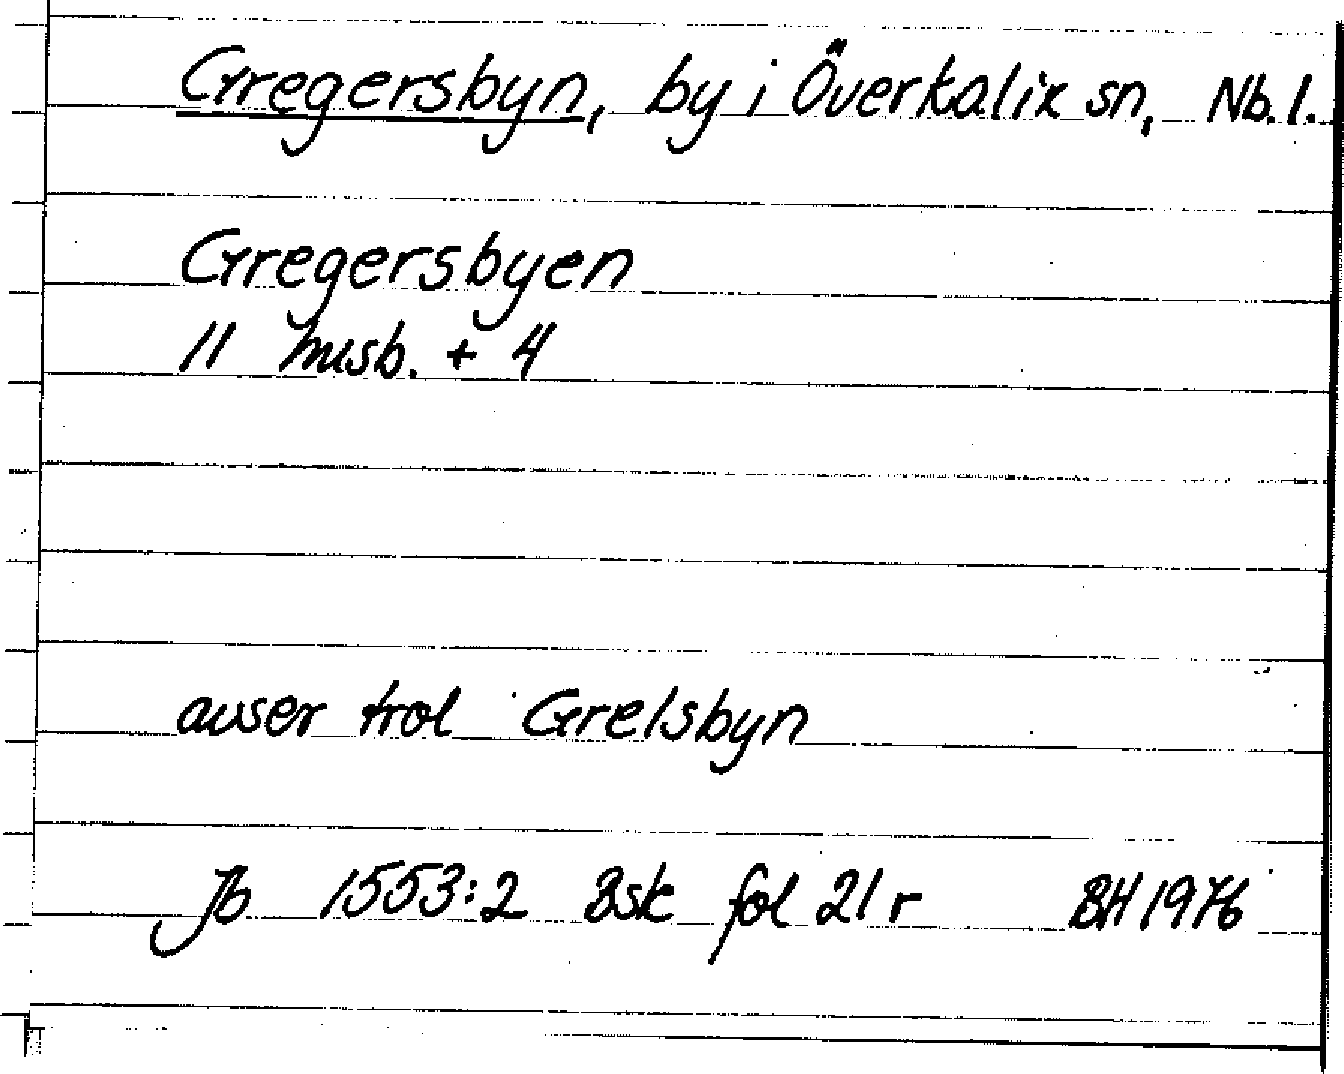 Gregersbyn, by i Överkalix sn, Nb. l.
Gregersbyen
11 husb. + 4
avser trol Grelsbyn
Jb 1553:2 Bsk fol 21 r BH 1976